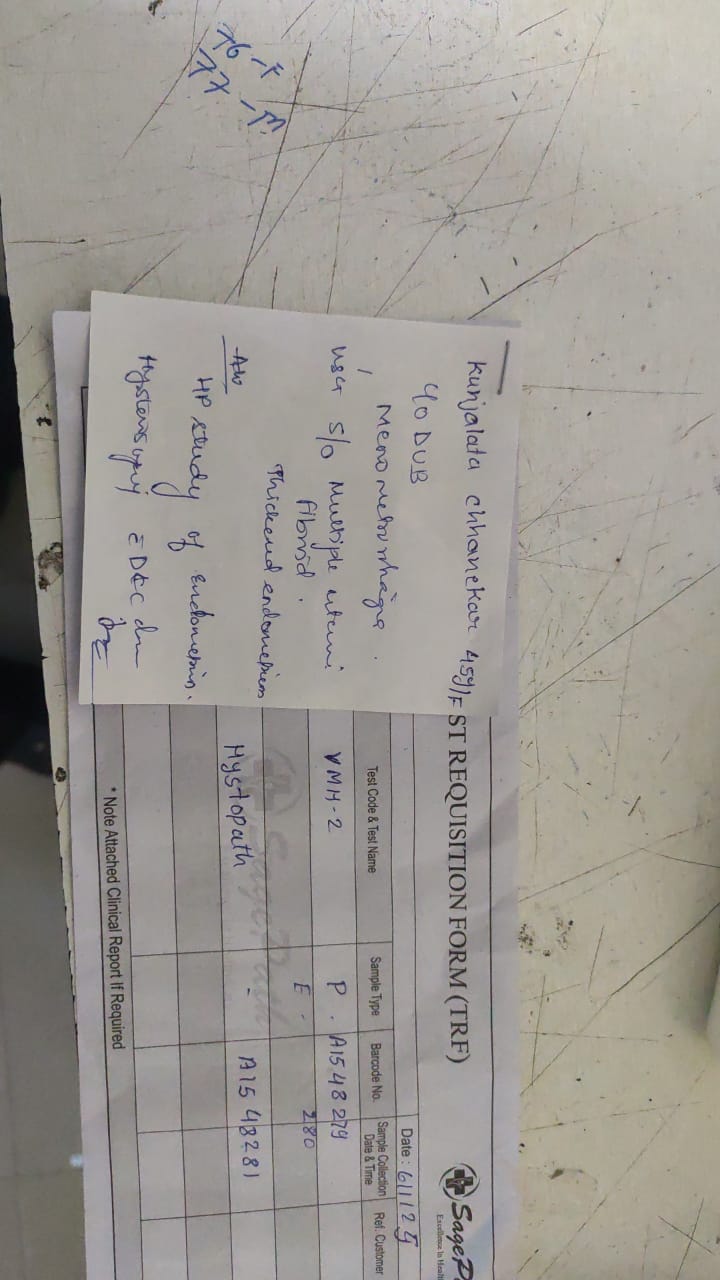 Kunjalata Chhanekar 45y/F
40 DUB
Menometrorrhagia.
USG s/o Multiple uterine
fibroid.
Thickend endometrium
Adv
HP study of endometrium.
Hysteroscopy c D&C dn
ST REQUISITION FORM (TRF)
SageP
Excellence In Healt
Date : 6/1/25
Test Code & Test Name Sample Type Barcode No. Sample Collection Date & Time Ref. Customer
VMH-2 P. A1548279
E - 280
Hystopath - A1548281
SagePath
* Note Attached Clinical Report If Required